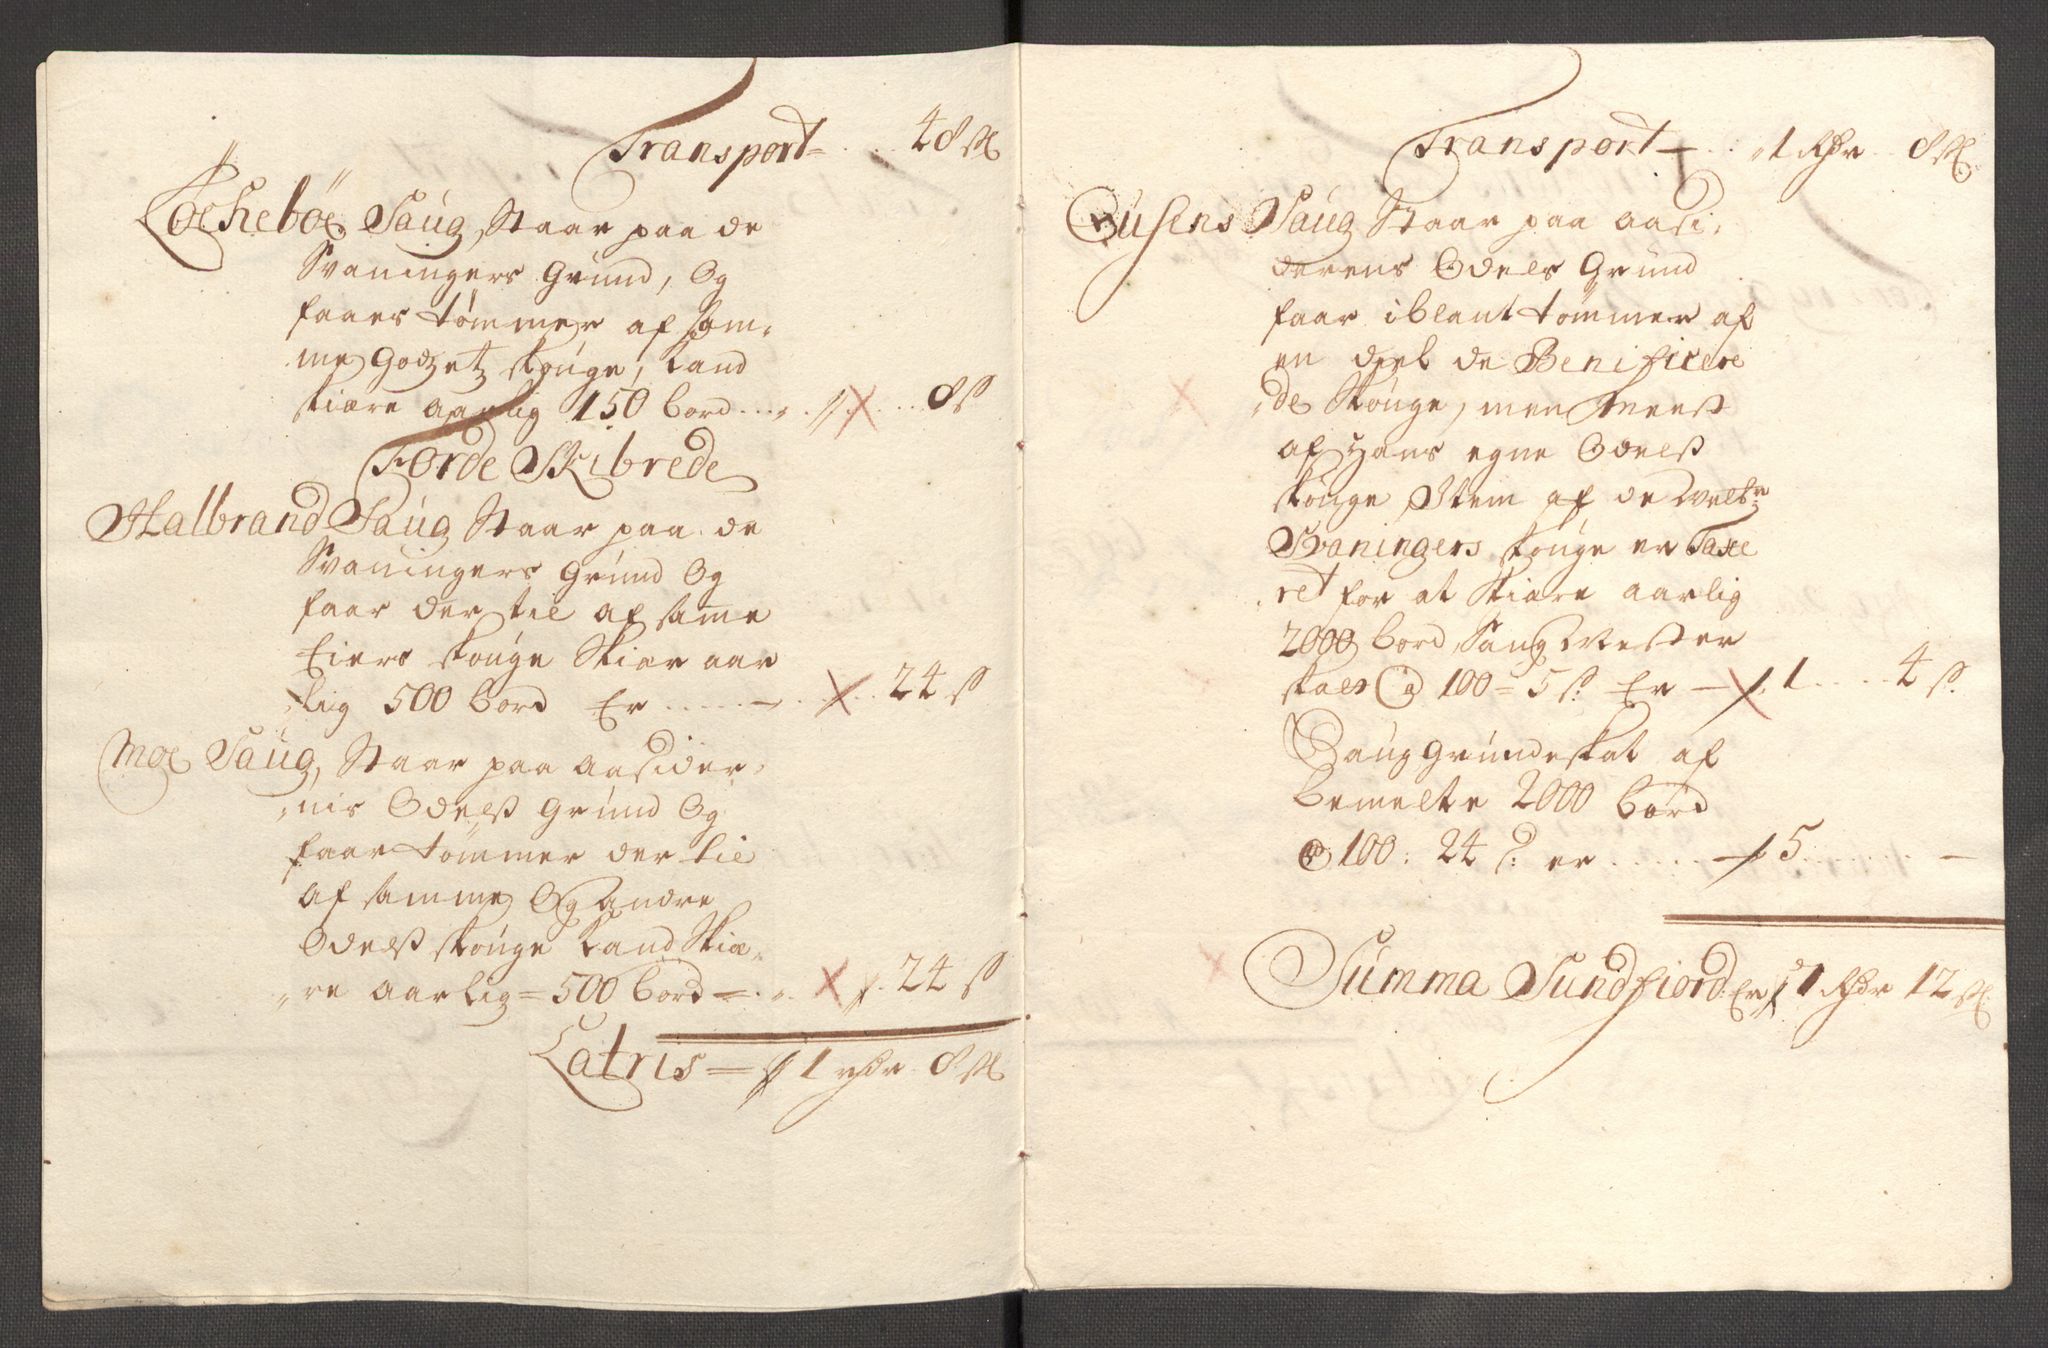 Transport 48 ß
Lochebøe Saug, Staar paa de
Svaningers Grund, Og
faaer tømmer af sam,
me Godzetz skouge, kand
skiære aarlig 150 bord 8 ß
Førde Skibrede
Halbrand Saug Staar paa de
Svaningers Grund Og
faar der til af samme
Eiers skouge Skiær aar
lig 500 bord Er 24 ß
Moe Saug, Staar paa Aasider,
nis Odelß Grund Og
faar tømmer der til
af samme Og andre
Odelß skouge kand Skiæ,
re aarlig = 500 bord 24 ß
Latris = 1 rdr 8 ß
Transport 1 Rdr 8 ß
Saug Staar paa Aasi,
derens Odels Grund
faar iblant tømmer af
en deel de Benificere
de Skouge, men Meest
af Hans egne Odelß
skouge Item af de Velbne
Svaningers skouge er Taxe
ret for at Skiære aarlig
2000 bord, Saug Mester
skaer @ 100 = 5 ß Er 1 4 ß
Saug Grundeskat af
bemelte 2000 bord
@ 100 : 24 ß: er 5 —
Summa Sundfiord Er Rdr 12 ß